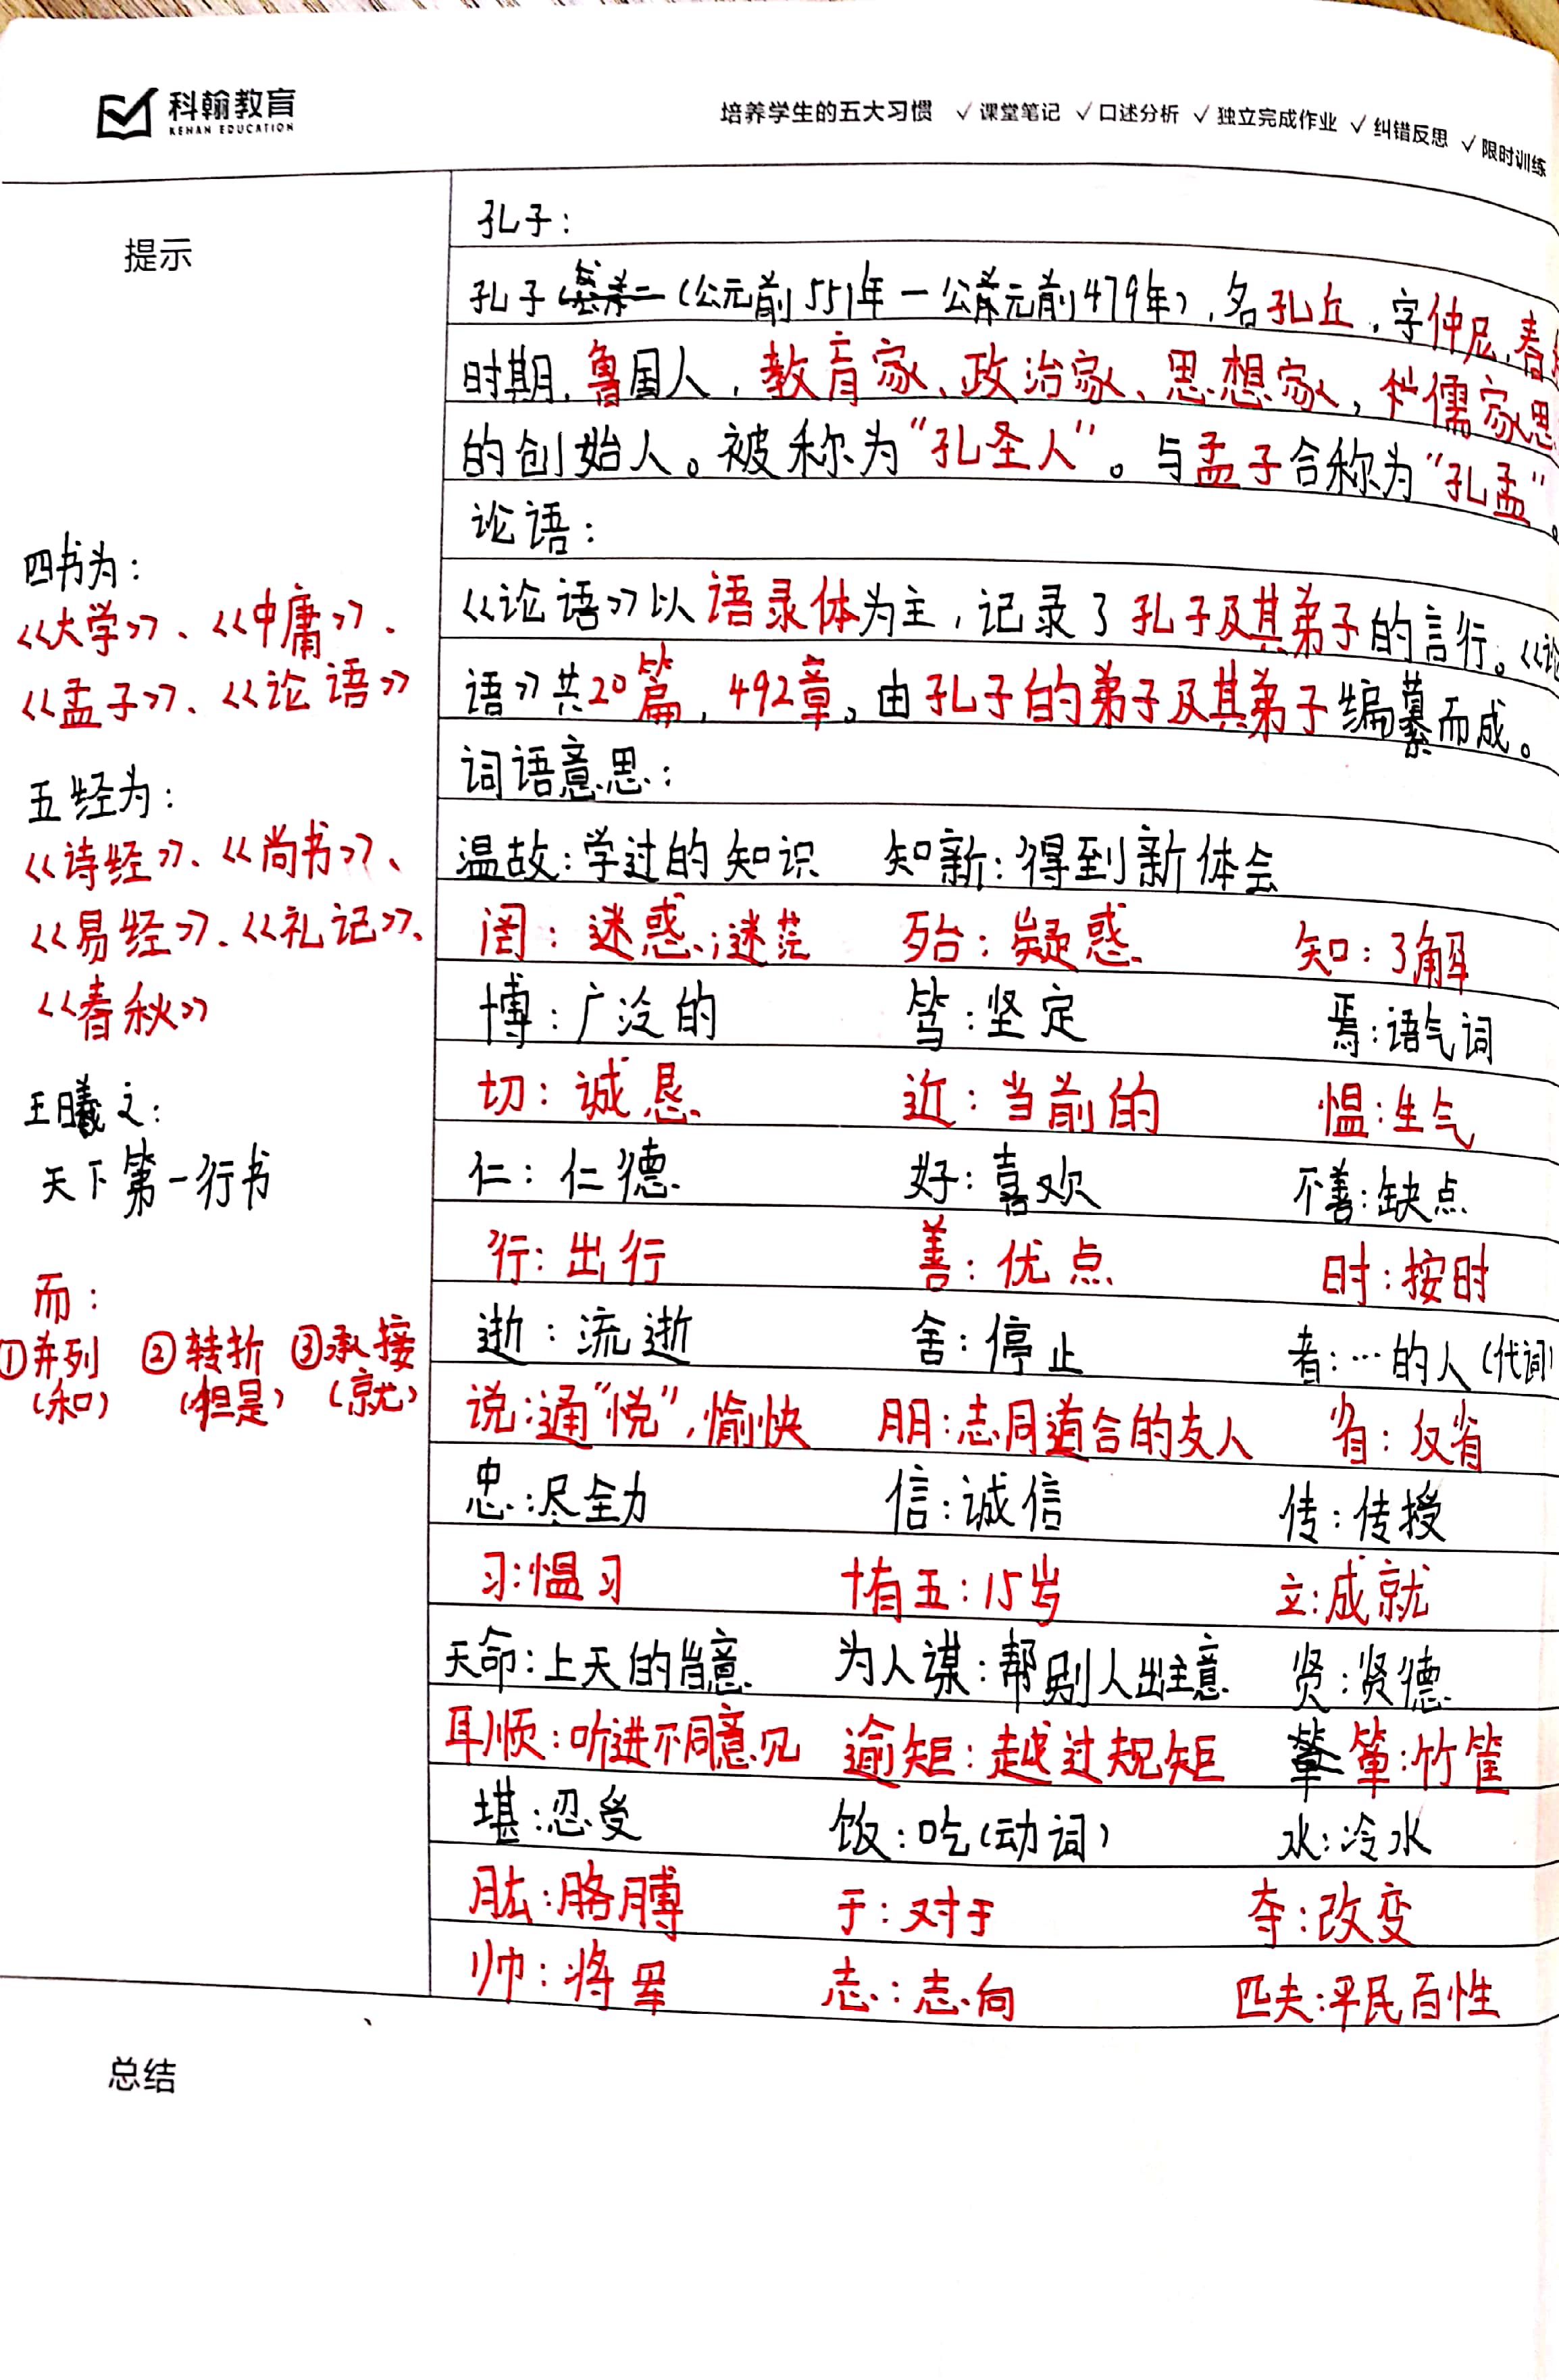 科翰教育
KEHAN EDUCATION
培养学生的五大习惯 ✓课堂笔记 ✓口述分析 ✓独立完成作业 ✓纠错反思 ✓限时训练
提示
四书为：
《大学》、《中庸》、
《孟子》、《论语》
五经为：
《诗经》、《尚书》、
《易经》、《礼记》、
《春秋》
王曦之：
天下第一行书
而：
①并列 ②转折 ③承接
（和） （但是） （就）
孔子：
孔子（公元前551年一公元前479年），名孔丘，字仲尼，春
时期，鲁国人，教育家、政治家、思想家，儒家思
的创始人。被称为“孔圣人”。与孟子合称为“孔孟”。
论语：
《论语》以语录体为主，记录了孔子及其弟子的言行。《论
语》共20篇，492章。由孔子的弟子及其弟子编纂而成。
词语意思：
温故：学过的知识 知新：得到新体会
罔：迷惑；迷茫 殆：疑惑 知：了解
博：广泛的 笃：坚定 焉：语气词
切：诚恳 近：当前的 愠：生气
仁：仁德 好：喜欢 不善：缺点
行：出行 善：优点 时：按时
逝：流逝 舍：停止 者：…的人（代词）
说：通“悦”，愉快 朋：志同道合的友人 省：反省
忠：尽全力 信：诚信 传：传授
习：愠习 十有五：15岁 立：成就
天命：上天的旨意 为人谋：帮别人出主意 贤：贤德
耳顺：听进不同意见 逾矩：越过规矩 箪：竹筐
堪：忍受 饭：吃（动词） 水：冷水
肱：胳膊 于：对于 夺：改变
帅：将军 志：志向 匹夫：平民百性
总结